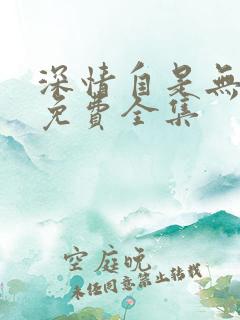 深情自是無
免費全集
空庭晚
未经同意禁止转载